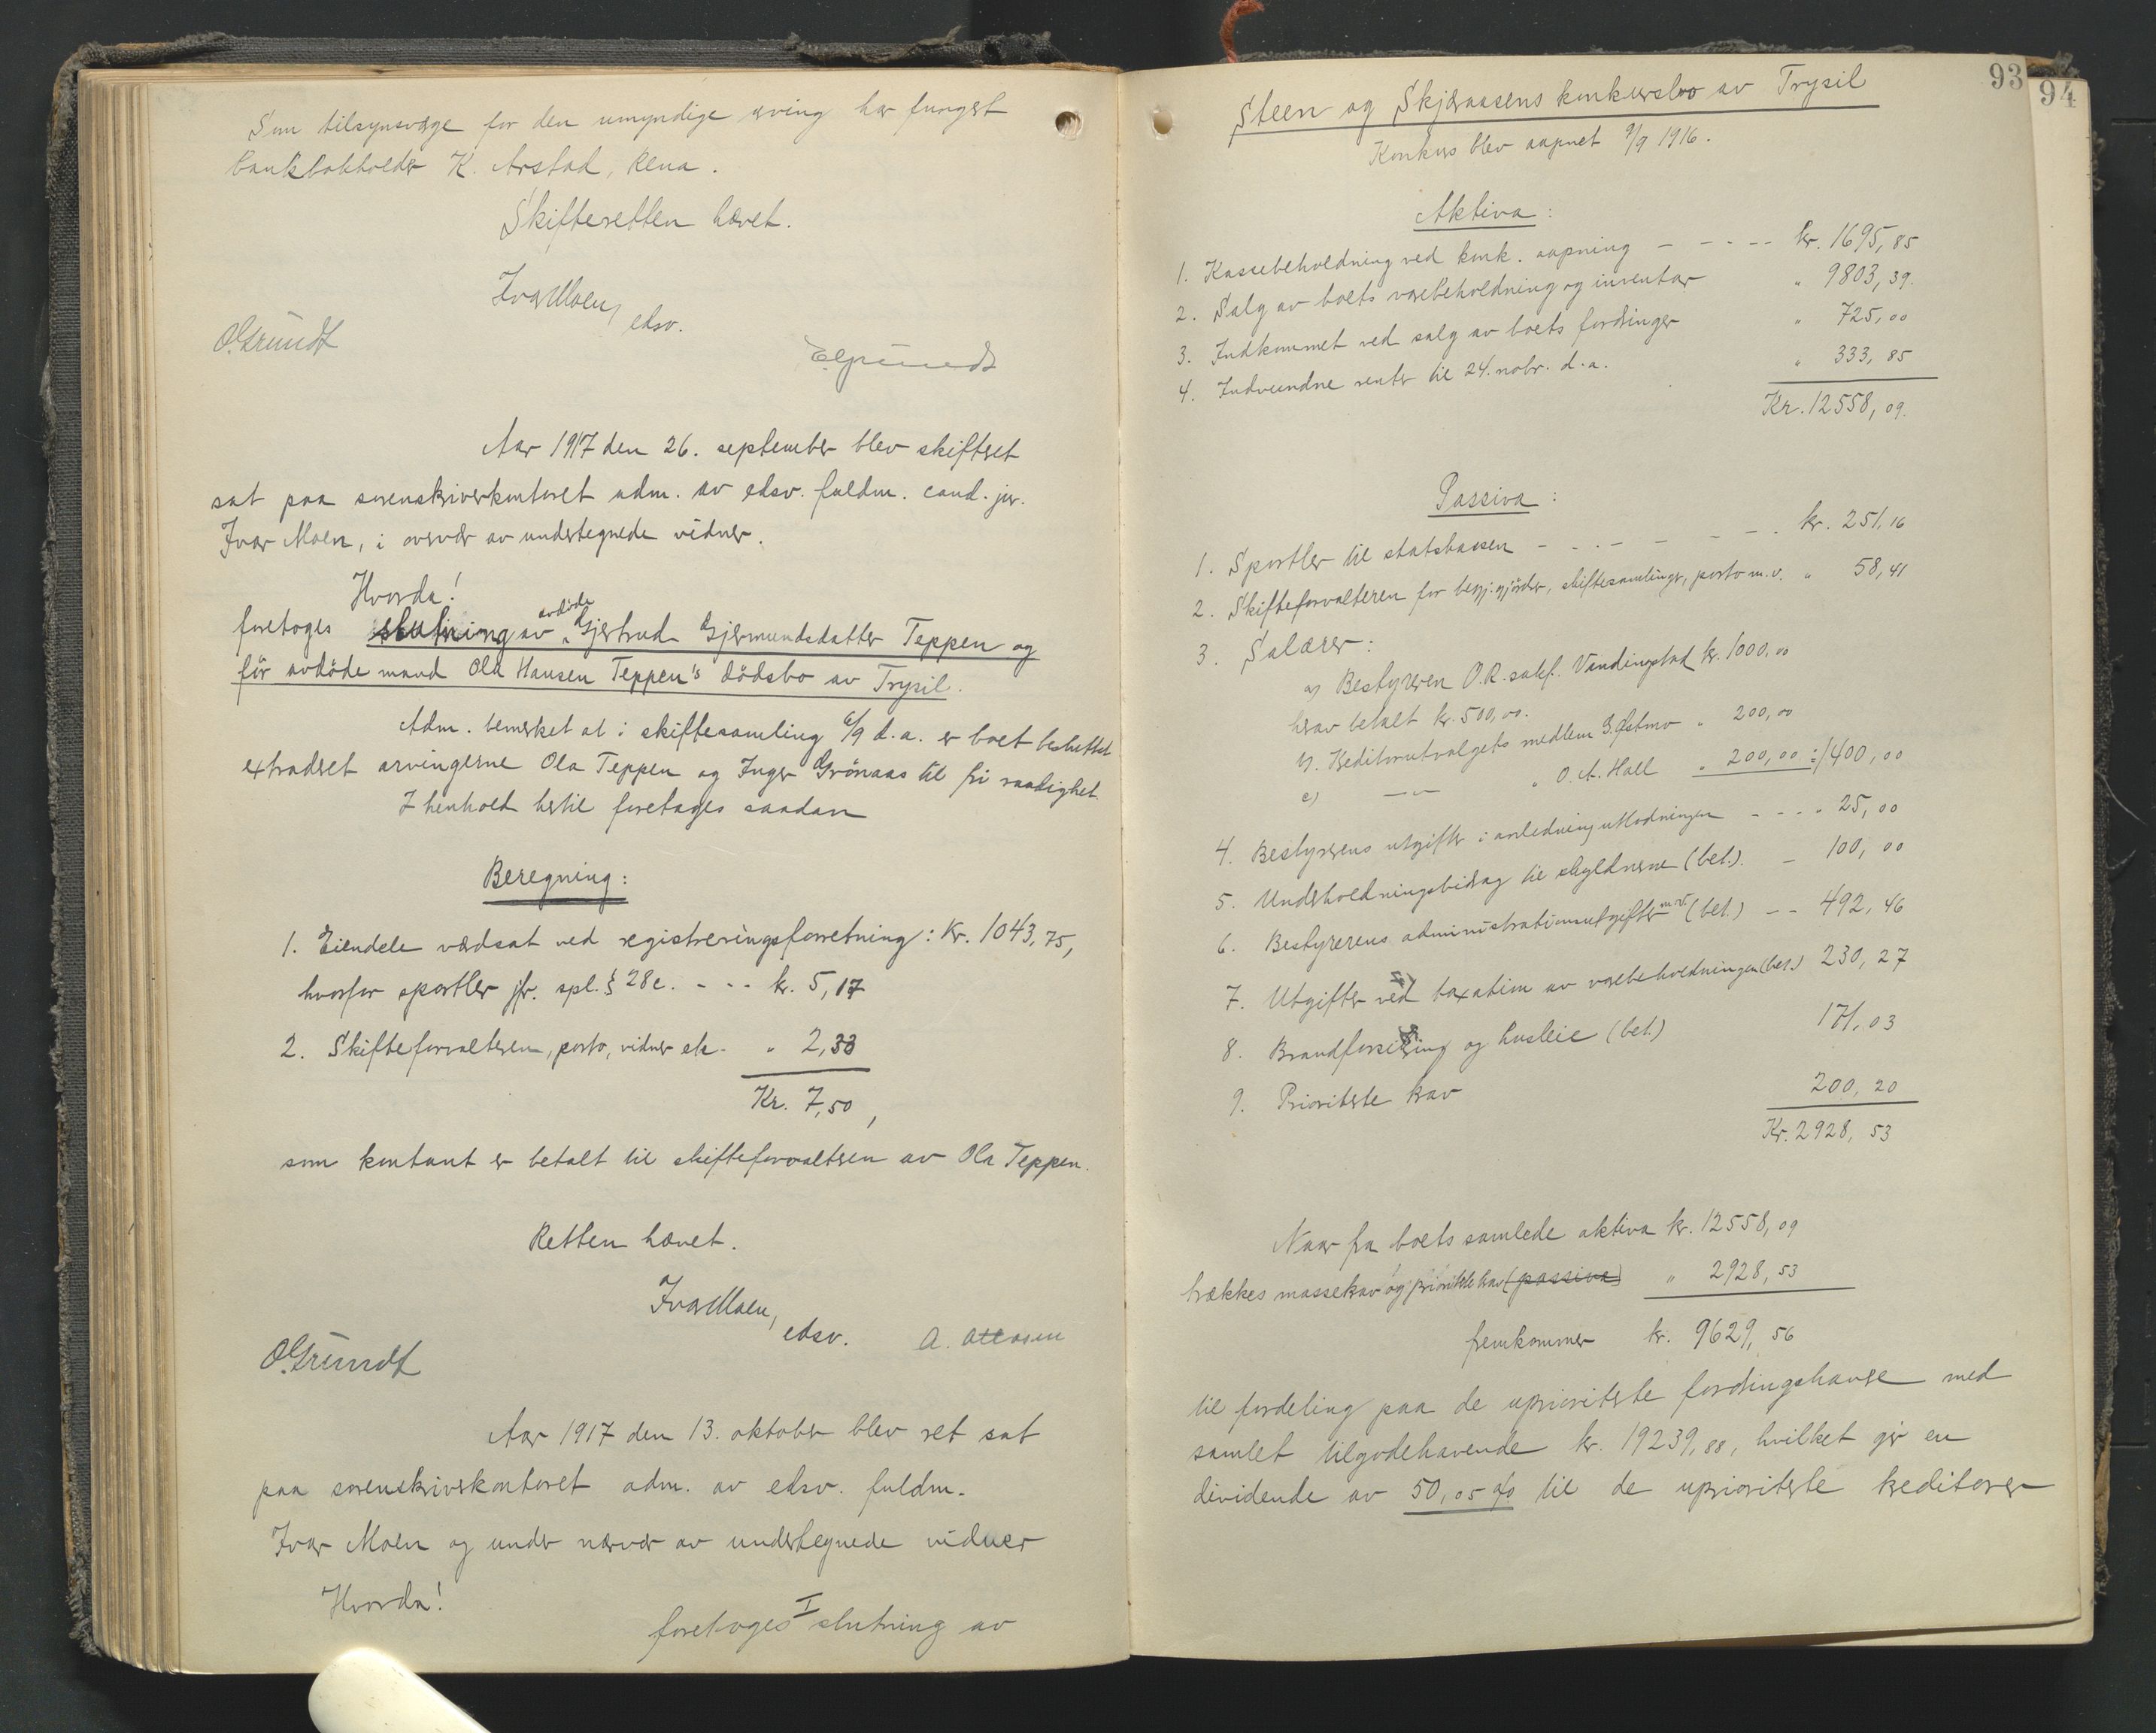 Som tilsynsværge for den umyndige arving har fungert
bankbokholder K. Arstad, Rena.
Skifteretten hævet.
Ivar Moen,
edsv.
O. Grundt
E. Grundt
Aar 1917 den 26. september blev skifteret
sat paa sorenskriverkontoret adm. av edsv. fuldm. cand. jur.
Ivar Moen, i overvær av undertegnede vidner.
Hvorda!
foretoges slutning av avdöde Gjertrud Gjermundsdatter Teppen og
för avdöde mand Ola Hansen Teppen's dödsbo av Trysil.
Adm. bemerket at i skiftesamling 6/9 d.a. er boet besluttet
extradert arvingerne Ola Teppen og Inger Grönaas til fri raadighet.
I henhold hertil foretages saadan
Beregning:
1. Eiendele værdsat ved registreringsforretning: Kr. 1043,75,
hvorfor sportler jfr. spl. § 28c. - - - kr. 5,17
2. Skifteforvalteren, porto, vidner etc. " 2,33
Kr. 7,50,
som kontant er betalt til skifteforvalteren av Ola Teppen.
Retten hævet.
Ivar Moen,
edsv.
A. Ottosen
O. Grundt
Aar 1917 den 13. oktober blev ret sat
paa sorenskriverkontoret adm. av edsv. fuldm.
Ivar Moen og under nærvær av undertegnede vidner
Hvorda!
foretoges I slutning av
93
94
Steen og Skjæraasens konkursbo av Trysil
Konkurs blev aapnet 9/9 1916.
Aktiva:
1. Kassebeholdning ved konk. aapning - - - - - kr. 1695,85
2. Salg av boets varebeholdning og inventar " 9803,39.
3. Indkommet ved salg av boets fordringer " 725,00
4. Indvundne renter til 24. nobr. d.a. " 333,85
Kr. 12558,09.
Passiva:
1. Sportler til statskassen - - - - - - - kr. 251,16
2. Skifteforvalteren for begj. gjörder, skiftesamlinger, porto m.v. " 58,41
3. Salærer:
a) Bestyreren O.R. sakf. Vandingstad kr. 1000,00
herav betalt kr. 500,00.
b). Kreditorutvalgets medlem G. Östmo " 200,00
c) —"— " O. A. Hall " 200,00 = 1400,00
4. Bestyrerens utgifter i anledning utlodningen - - - - 25,00
5. Underholdningsbidrag til skyldnerne (bet.). - 100,00
6. Bestyrerens administrationsutgifter m.v. (bet.) - - 492,46
7. Utgifter ved taxation av varebeholdningen (bet.) 230,27
8. Brandforsikring og husleie (bet.) 171,03
9. Prioriterte krav 200,20
Kr. 2928,53
Naar fra boets samlede aktiva kr. 12558,09
trækkes massekrav og prioriterte krav (passiva) " 2928,53
fremkommer kr. 9629,56
til fordeling paa de uprioriterte fordringshavere med
samlet tilgodehavende kr. 19239,88, hvilket gir en
dividende av 50,05 % til de uprioriterte kreditorer